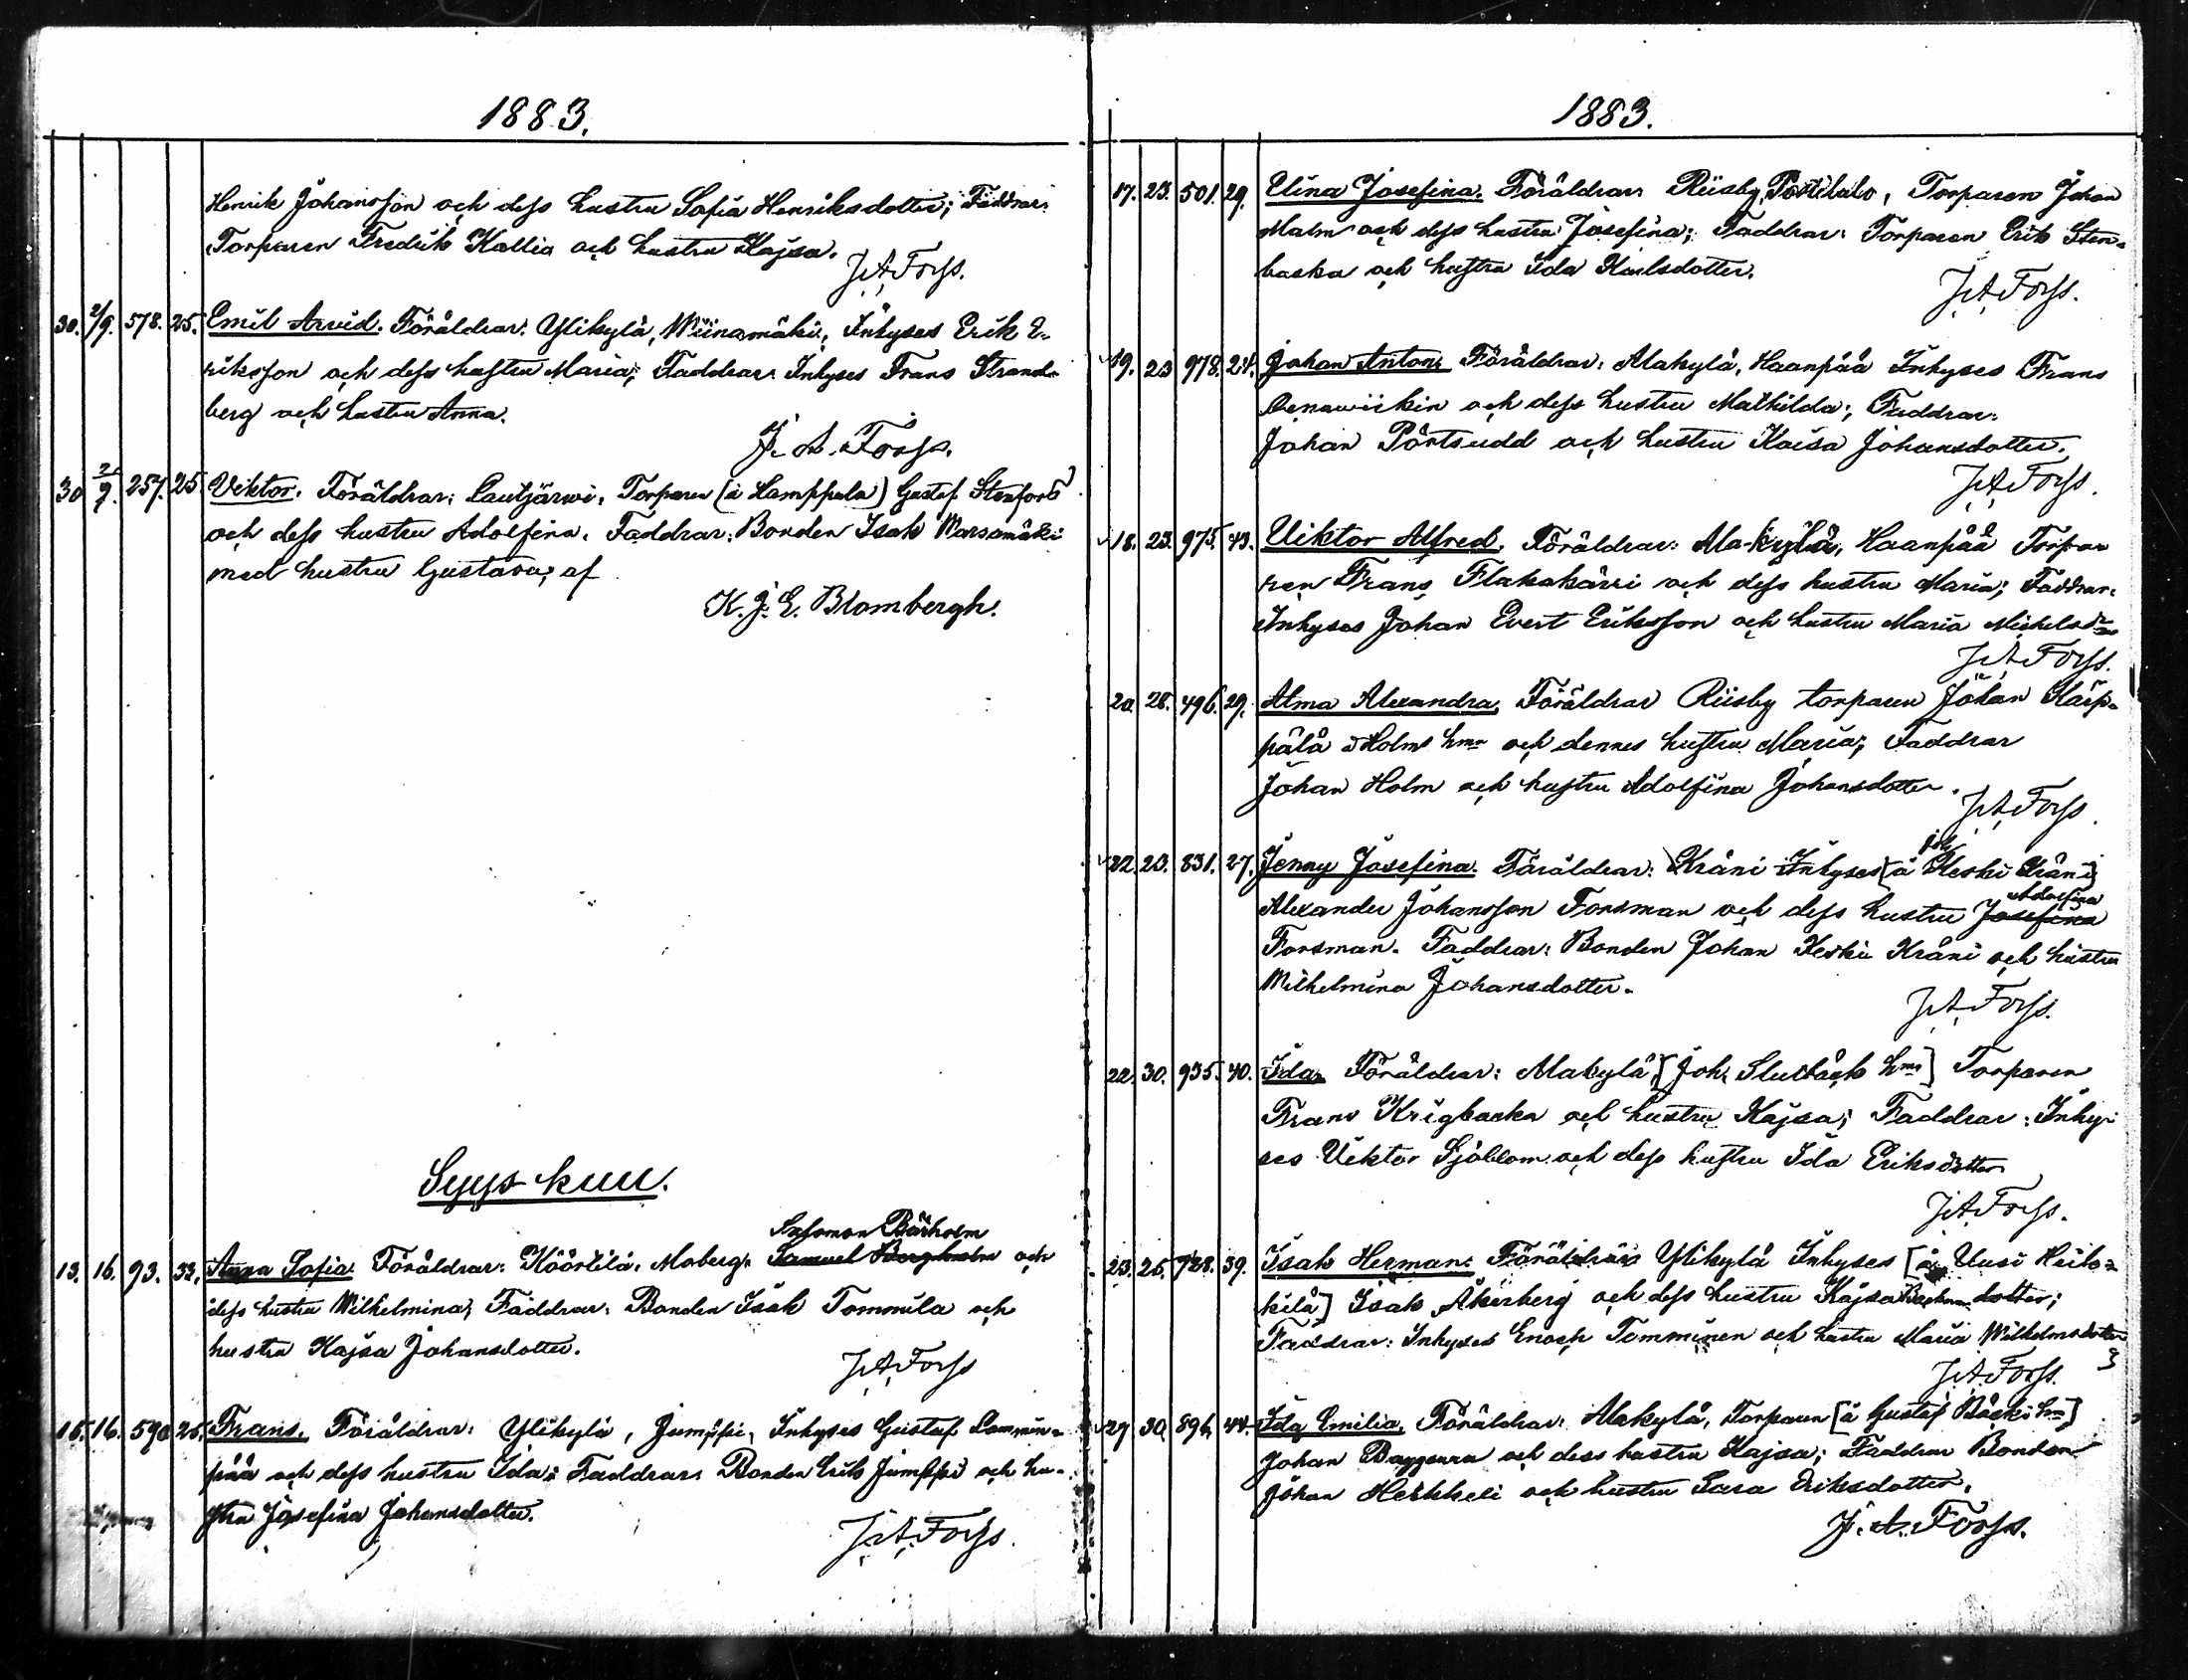 1883.
Henrik Johansson och dess hustru Sofia Henriksdotter; Faddrar:
Torparen Fredrik Kallia och hustru Kajsa.
J. A. Forss.
30. 2/9. 578. 25. Emil Arvid. Föräldrar: Ylikylä, Wiinamäki, Inhyses Erik E-
riksson och dess hustru Maria; Faddrar: Inhyses Frans Strand-
berg och hustru Anna.
J. A. Forss.
30 2/9. 257. 25 Viktor. Föräldrar: Lautjärwi, Torparen (å Hamppula) Gustaf Stenfors
och dess hustru Adolfina. Faddrar: Bonden Isak Warsamäki
med hustru Gustava, af
K. J. E. Blombergh.
Syys kuu.
Salomon Bärholm
13. 16. 93. 33. Anna Sofia. Föräldrar: Köörtilä, Moberg, Samuel Bergholm och
dess hustru Wilhelmina; Faddrar: Bonden Isak Tommila och
hustru Kajsa Johansdotter.
J. A. Forss
15. 16. 590 25. Frans. Föräldrar: Ylikylä, Jumppi, Inhyses Gustaf Lammin-
pää och dess hustru Ida; Faddrar: Bonden Erik Jumppi och hu-
stru Josefina Johansdotter.
J. A. Forss.
1883.
17. 23. 501. 29. Elina Josefina. Föräldrar: Riisby, Torparen Johan
Malm och dess hustru Josefina; Faddrar: Torparen Erik Sten-
backa och hustru Ida Karlsdotter.
J. A. Forss.
19. 23 978. 24. Johan Anton. Föräldrar: Alakylä, Haanpää Inhyses Frans
och dess hustru Mathilda; Faddrar:
Johan Pörtsudd och hustru Kaisa Johansdotter.
J. A. Forss.
18. 23. 975. 43. Viktor Alfred. Föräldrar: Ala-kylä, Haanpää Torpar
ren Frans Flakakärri och dess hustru Maria; Faddrar:
Inhyses Johan Evert Eriksson och hustru Maria
J. A. Forss.
20. 28. 496. 29. Alma Alexandra. Föräldrar Riisby torparen Johan Kärp-
pälä å Holms hmn och dennes hustru Maria; Faddrar
Johan Holm och hustru Adolfina Johansdotter.
J. A. Forss.
22. 23. 831. 27. Jenny Josefina. Föräldrar: Kråni Inhyses [å Keski Kråni]
Adolfina
Alexander Johansson Forsman och dess hustru Josefina
Forsman. Faddrar: Bonden Johan Keski Kråni och hustru
Wilhelmina Johansdotter.
J. A. Forss.
22. 30. 935. 40. Ida. Föräldrar: Alakylä, [Joh. hmn] Torparen
Frans Krigbacka och hustru Kajsa; Faddrar: Inhy-
ses Viktor Sjöblom och dess hustru Ida Eriksdotter
J. A. Forss.
23. 25. 728. 39. Isak Herman. Föräldrar Ylikylä Inhyses [å Uusi Heik-
kilä] Isak Åkerberg och dess hustru Kajsa dotter;
Faddrar: Inhyses Enoch Tomminen och hustru Maria Wilhelmsdotter
J. A. Forss.
27 30. 896. 44. Ida Emilia. Föräldrar: Alakylä, Torparen [å Gustaf Bäcki hmn]
Johan och dess hustru Kajsa; Faddrar Bonden
Johan Heikkeli och hustru Sara Eriksdotter.
J. A. Forss.